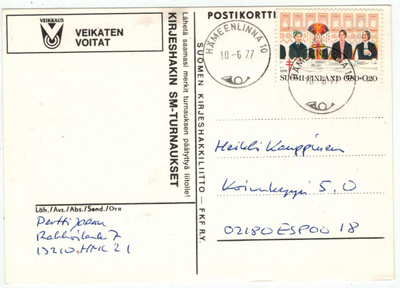 VEIKKAUS
VEIKATEN
VOITAT
POSTIKORTTI
HÄMEENLINNA 10
18-6.77
HÄMEENLINNA 10
-6.77
SUOMI FINLAND 0,80+0,20
Lähetä saamasi merkit turnauksen päätyttyä liitolle!
KIRJESHAKIN SM-TURNAUKSET
SUOMEN KIRJESHAKKILIITTO — FKF R.Y.
Heikki Kauppinen
5.0
02180 ESPOO 18
Läh./Avs./Abs./Send./Отп
Pertti
13210 HML 21